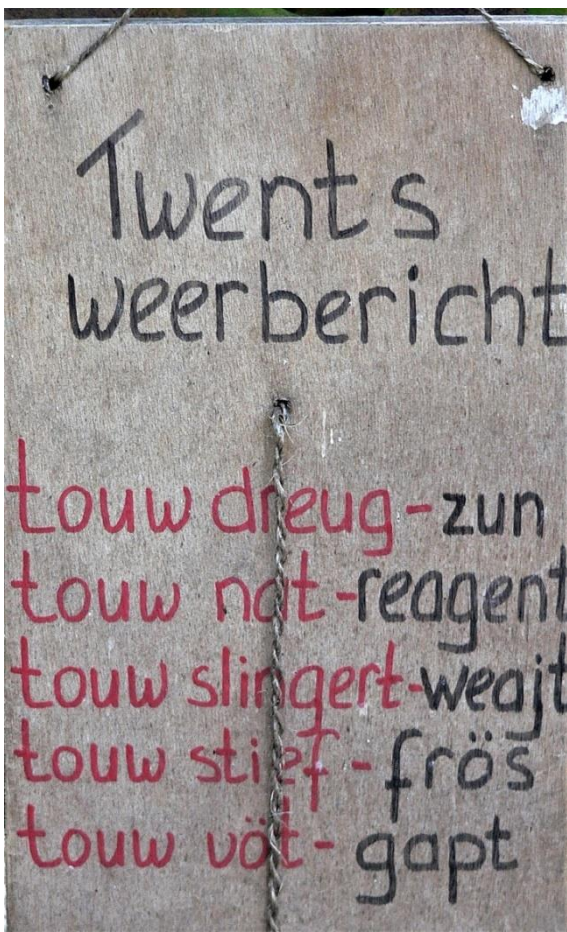 Twents
weerbericht
touw dreug-zun
touw nat-reagent
touw slingert-weajt
touw stief-frös
touw vöt-gapt